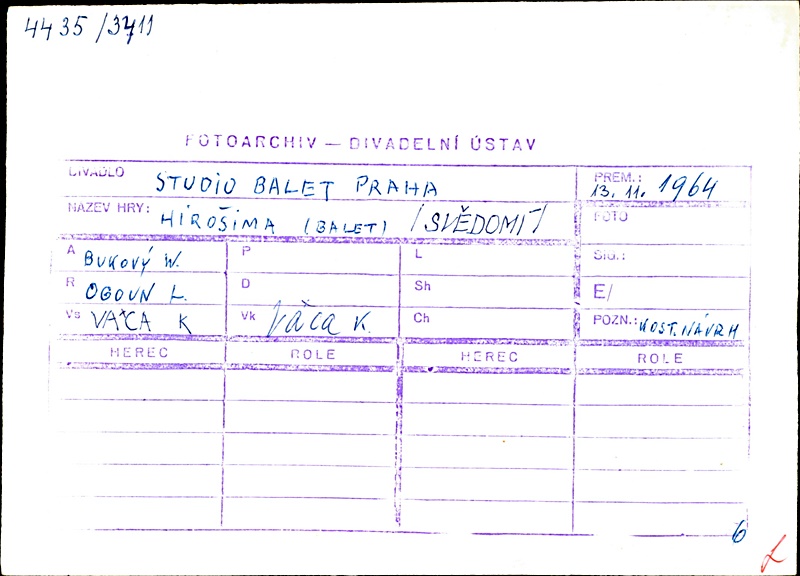 4435/3711
FOTOARCHIV — DIVADELNÍ ÚSTAV
DIVADLO STUDIO BALET PRAHA
PREM.: 13. 11. 1964
NÁZEV HRY: HIROŠIMA (BALET) /SVĚDOMÍ/
FOTO
A BUKOVÝ W. P L SIG.:
R OGOUN L. D Sh E/
Vs VAČA K Vk Vača K. Ch POZN.: KOST. NÁVRH
HEREC ROLE HEREC ROLE
6
L